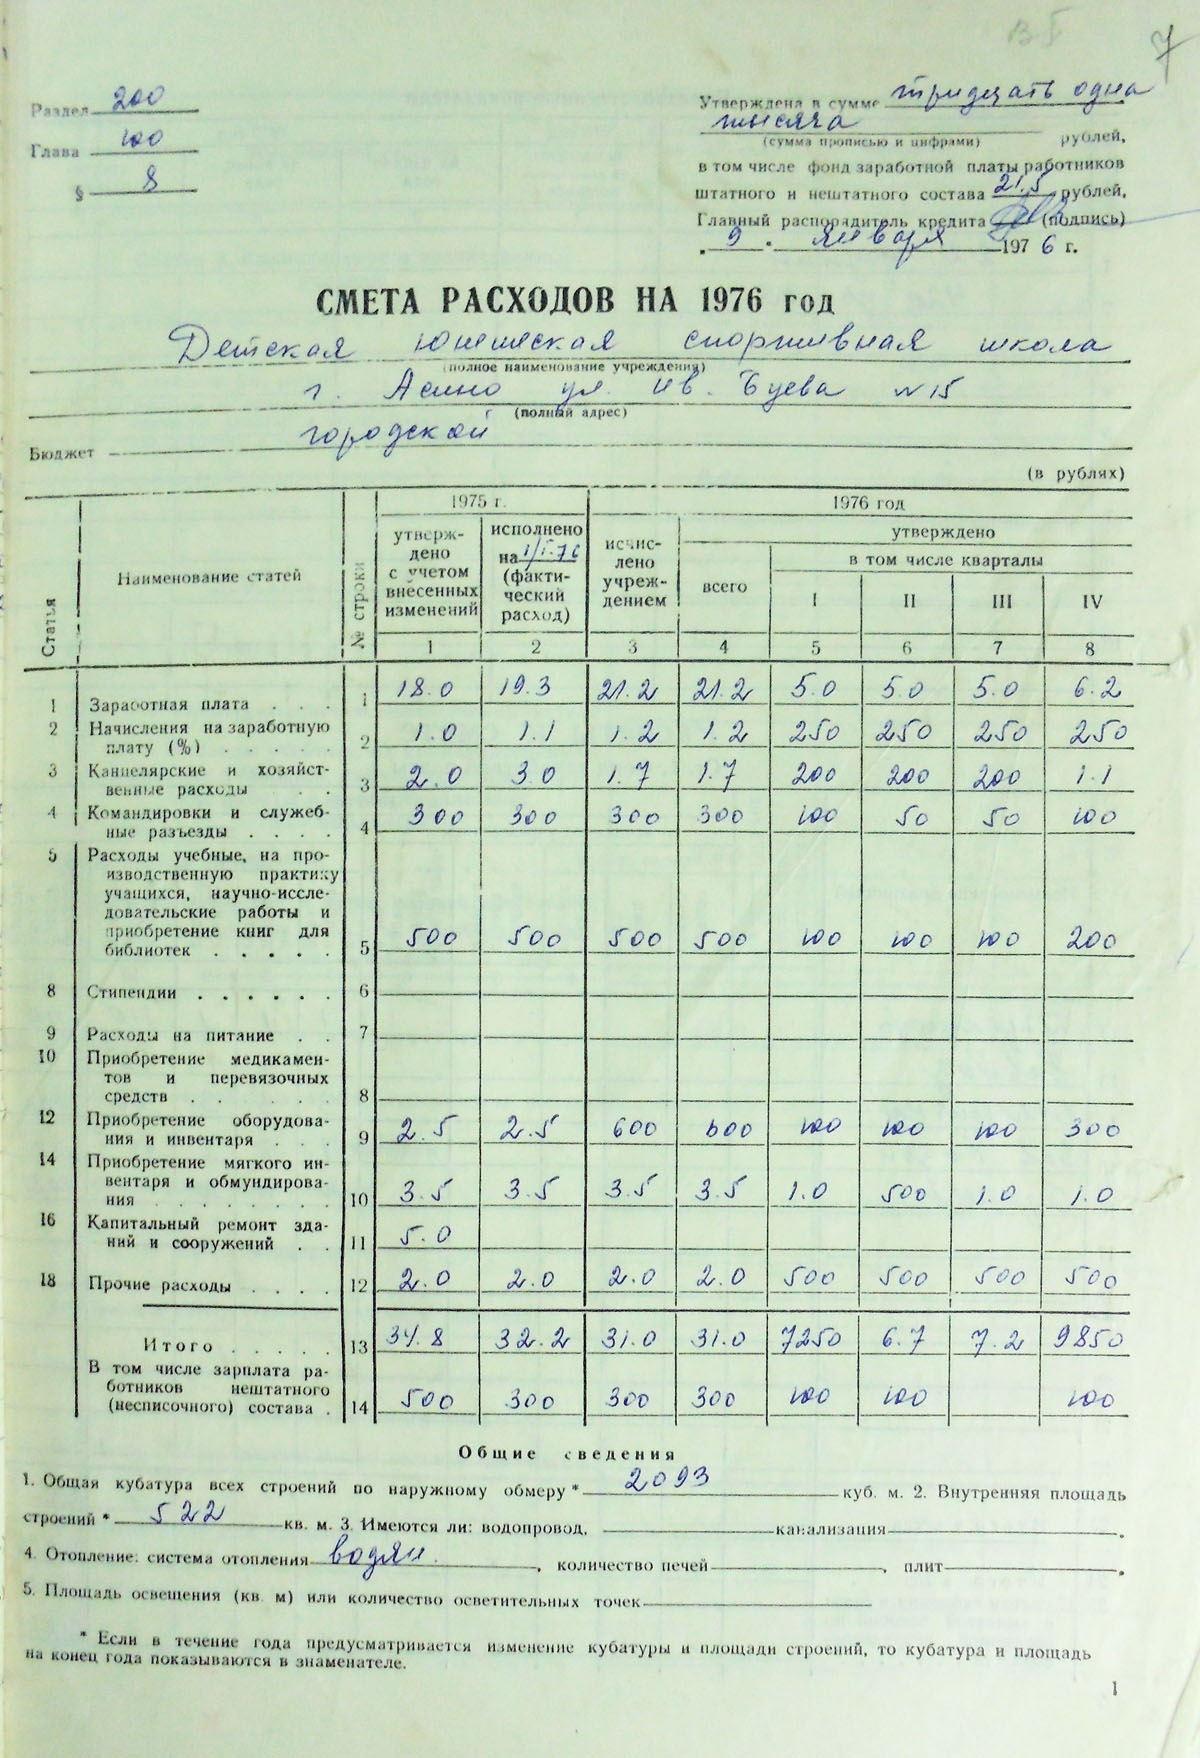 7
Раздел 200
Глава 100
§ 8
Утверждена в сумме тридцать одна
тысяча рублей,
(сумма прописью и цифрами)
в том числе фонд заработной платы работников
штатного и нештатного состава 21.5 рублей,
Главный распорядитель кредита (подпись)
„ 9 " января 1976 г.
СМЕТА РАСХОДОВ НА 1976 год
Детская юношеская спортивная школа
(полное наименование учреждения)
г. Асино ул. Ив. Буева № 15
(полный адрес)
Бюджет городской
(в рублях)
Статья | Наименование статей | № строки | 1975 г. | 1976 год
утверждено с учетом внесенных изменений | исполнено на 1/I-76 (фактический расход) | исчислено учреждением | утверждено
всего | в том числе кварталы
I | II | III | IV
1 | 2 | 3 | 4 | 5 | 6 | 7 | 8
1 Заработная плата . . . 1 18.0 19.3 21.2 21.2 5.0 5.0 5.0 6.2
2 Начисления на заработную
плату (%) . . . . . 2 1.0 1.1 1.2 1.2 250 250 250 250
3 Канцелярские и хозяйст-
венные расходы . . 3 2.0 3.0 1.7 1.7 200 200 200 1.1
4 Командировки и служеб-
ные разъезды . . . . 4 300 300 300 300 100 50 50 100
5 Расходы учебные, на про-
изводственную практику
учащихся, научно-иссле-
довательские работы и
приобретение книг для
библиотек . . . . . 5 500 500 500 500 100 100 100 200
8 Стипендии . . . . . . 6
9 Расходы на питание . . 7
10 Приобретение медикамен-
тов и перевязочных
средств . . . . . 8
12 Приобретение оборудова-
ния и инвентаря . . . 9 2.5 2.5 600 600 100 100 100 300
14 Приобретение мягкого ин-
вентаря и обмундирова-
ния . . . . . . . . 10 3.5 3.5 3.5 3.5 1.0 500 1.0 1.0
16 Капитальный ремонт зда-
ний и сооружений . . 11 5.0
18 Прочие расходы . . . . 12 2.0 2.0 2.0 2.0 500 500 500 500
Итого . . . . . 13 34.8 32.2 31.0 31.0 7250 6.7 7.2 9850
В том числе зарплата ра-
ботников нештатного
(несписочного) состава . 14 500 300 300 300 100 100 100
Общие сведения
1. Общая кубатура всех строений по наружному обмеру * 2093 куб. м. 2. Внутренняя площадь
строений * 522 кв. м. 3. Имеются ли: водопровод, канализация .
4. Отопление: система отопления водян. , количество печей , плит .
5. Площадь освещения (кв. м) или количество осветительных точек
* Если в течение года предусматривается изменение кубатуры и площади строений, то кубатура и площадь
на конец года показываются в знаменателе.
1